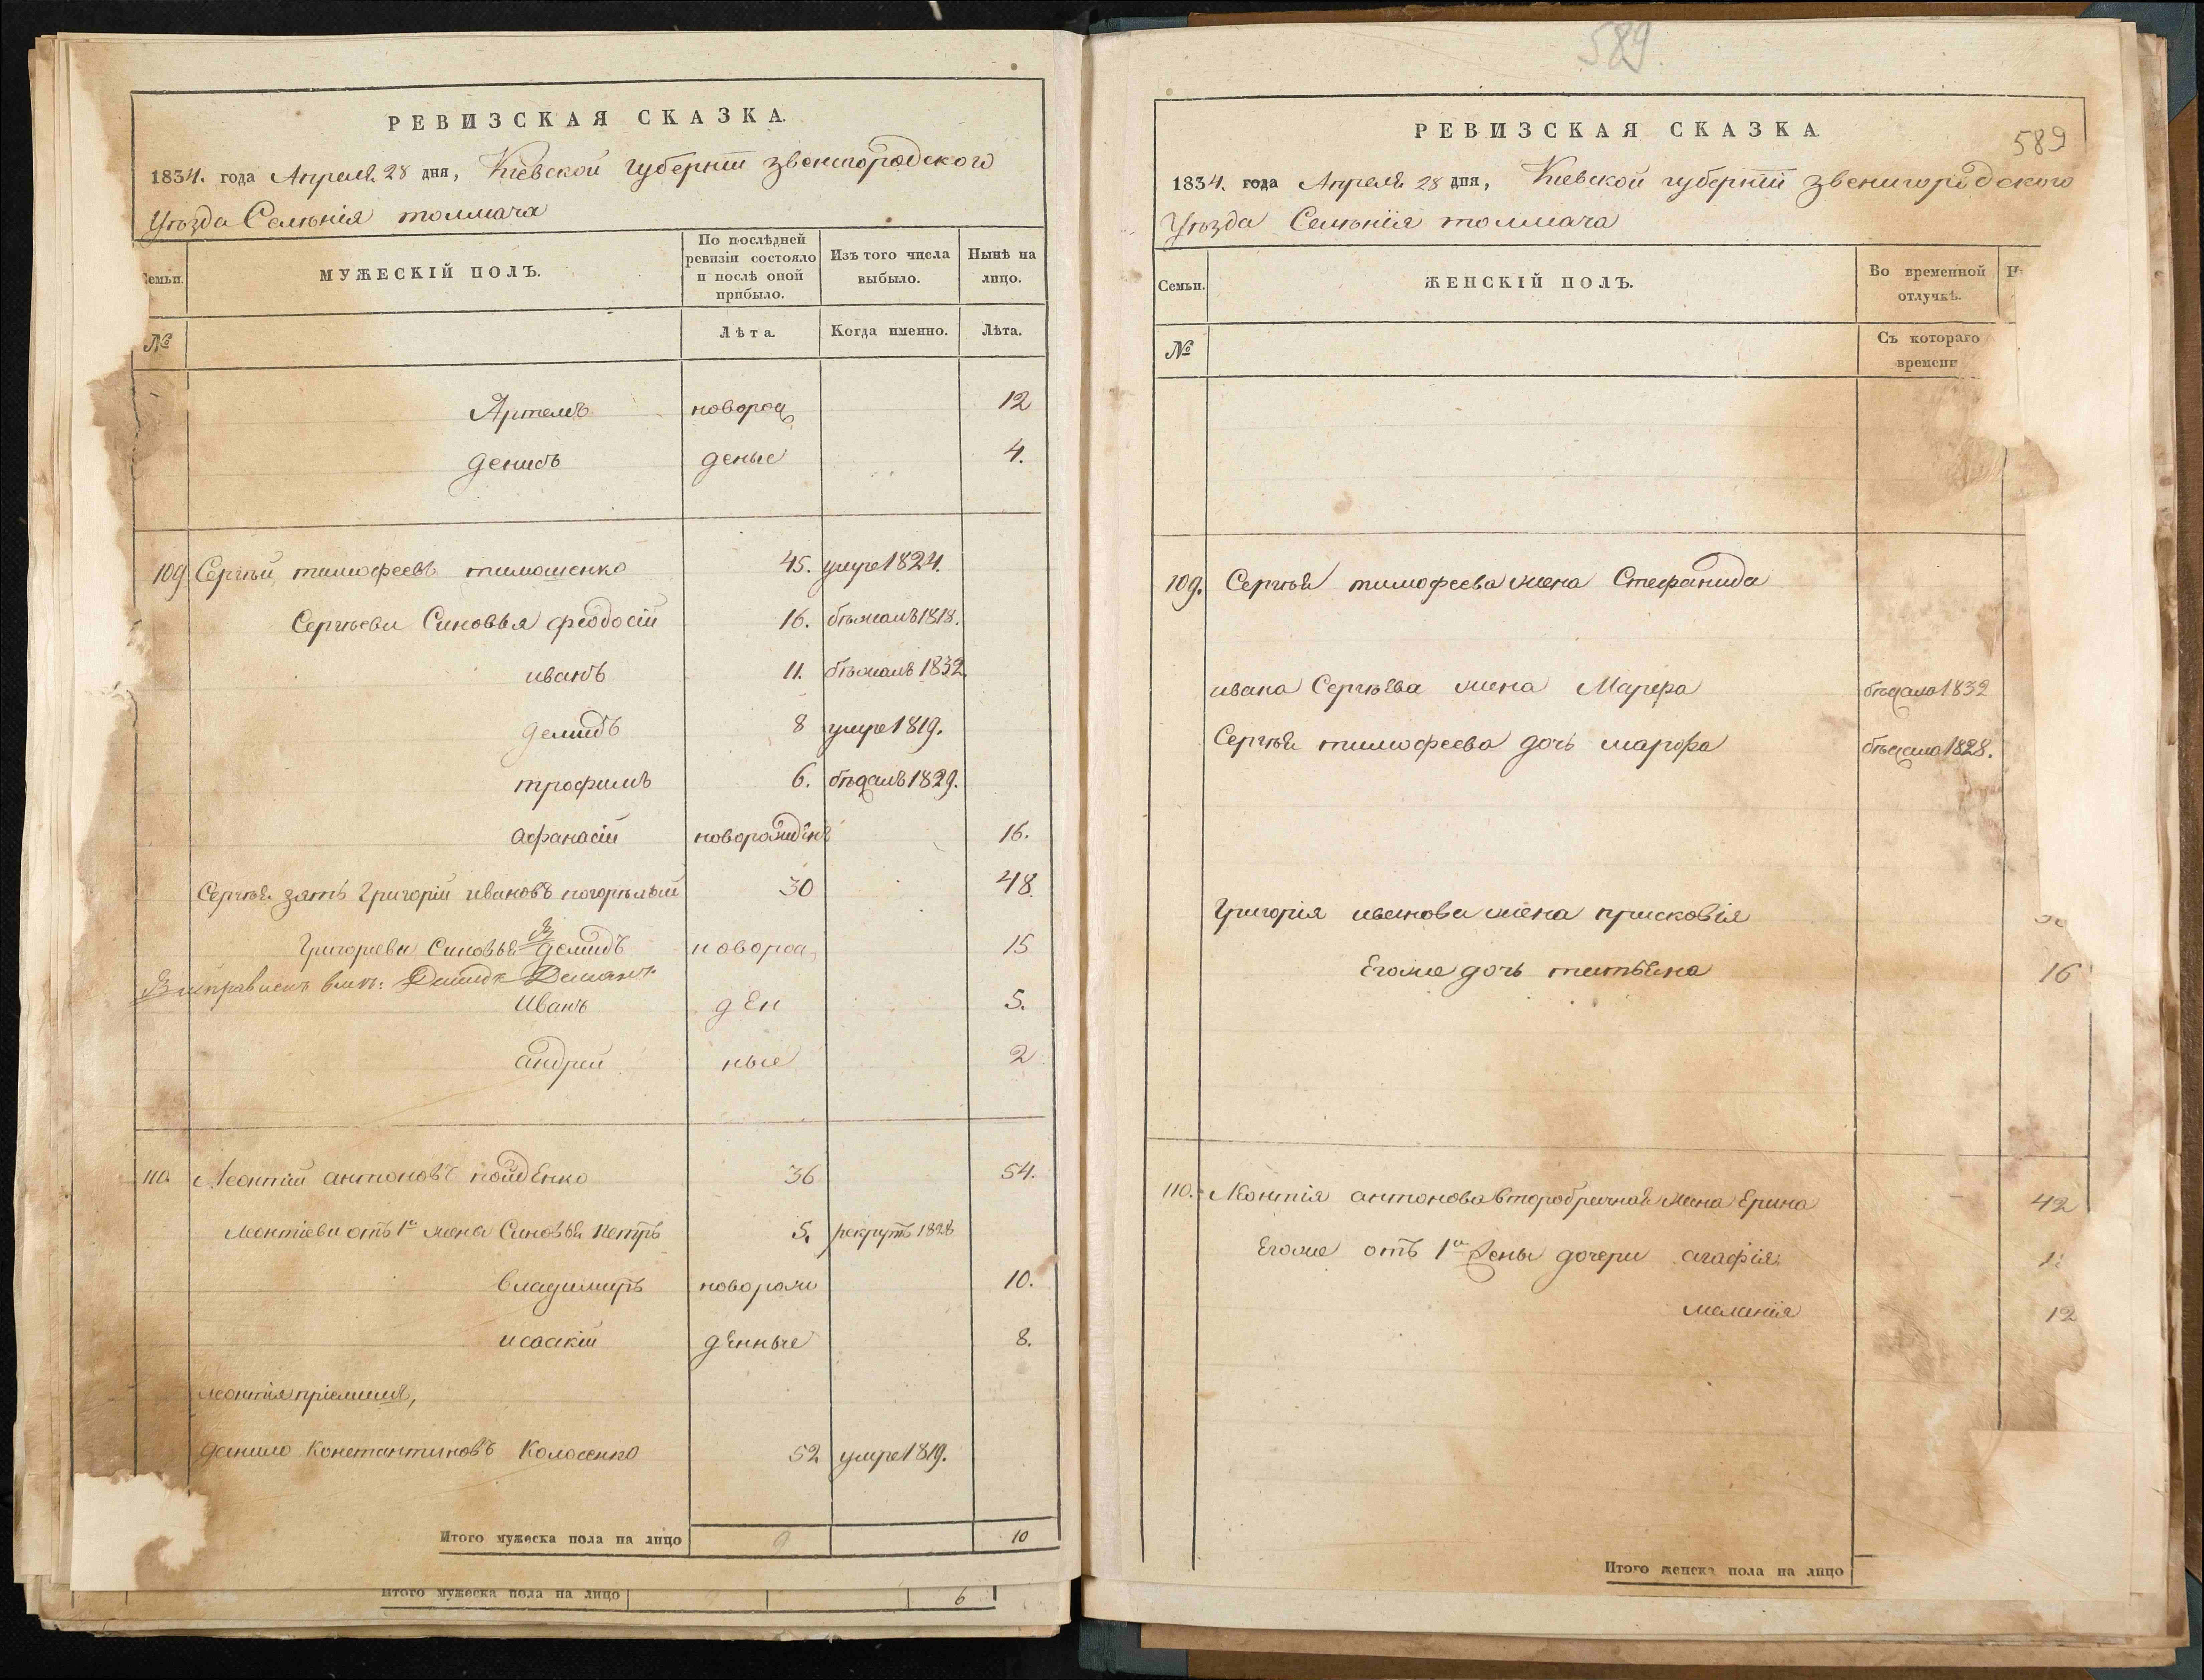 РЕВИЗСКАЯ СКАЗКА.
1834. года Апреля 28 дня, Киевской губерніи звенигородского
Уѣзда Селѣнія толмача
Семьи.
МУЖЕСКІЙ ПОЛЪ.
По послѣдней ревизіи состояло и послѣ оной прибыло.
Изъ того числа выбыло.
Нынѣ на лицо.
№
Лѣта.
Когда именно.
Лѣта.
Артемъ новорож 12
денисъ деные 4.
109 Сергѣй тимофеевъ тимошенко 45. умре 1824.
Сергѣеви Синовья феодосій 16. бѣжалъ 1818.
иванъ 11. бѣжалъ 1832.
демидъ 8 умре 1819.
трофимъ 6. бѣжалъ 1829.
афанасій новорожден 16.
Сергѣя зять Григорій ивановъ погорѣлый 30 48.
Григориеви Синовья демидъ новорож 15
Демидъ Демянъ
Иванъ ден 5.
андрей ные 2
110. Леонтій антоновъ пойденко 36 54.
леонтіеви отъ 1й жены Синовья петръ 5. рекрутъ 1828
владимиръ новорож 10.
исаакій денные 8.
леонтія пріемиша,
данило Константиновъ Колосенко 52 умре 1819.
Итого мужеска пола на лицо 9 10
Итого мужеска пола на лицо 6
589.
589
РЕВИЗСКАЯ СКАЗКА
1834. года Апреля 28 дня, Киевской губерніи звенигородского
Уѣзда Селѣнія толмача
Семьи.
ЖЕНСКІЙ ПОЛЪ.
Во временной отлучкѣ.
№
Съ котораго времени
109. Сергѣя тимофеева жена Стефанида
ивана Сергѣева жена Марфа бѣжала 1832
Сергѣя тимофеева дочь марфа бѣжала 1828.
Григорія иванова жена присковія
Егоже дочь татьяна 16
110. Леонтія антонова второбрачная жена Ерина 42
Егоже отъ 1й жены дочери агафія
маланія 12
Итого женска пола на лицо